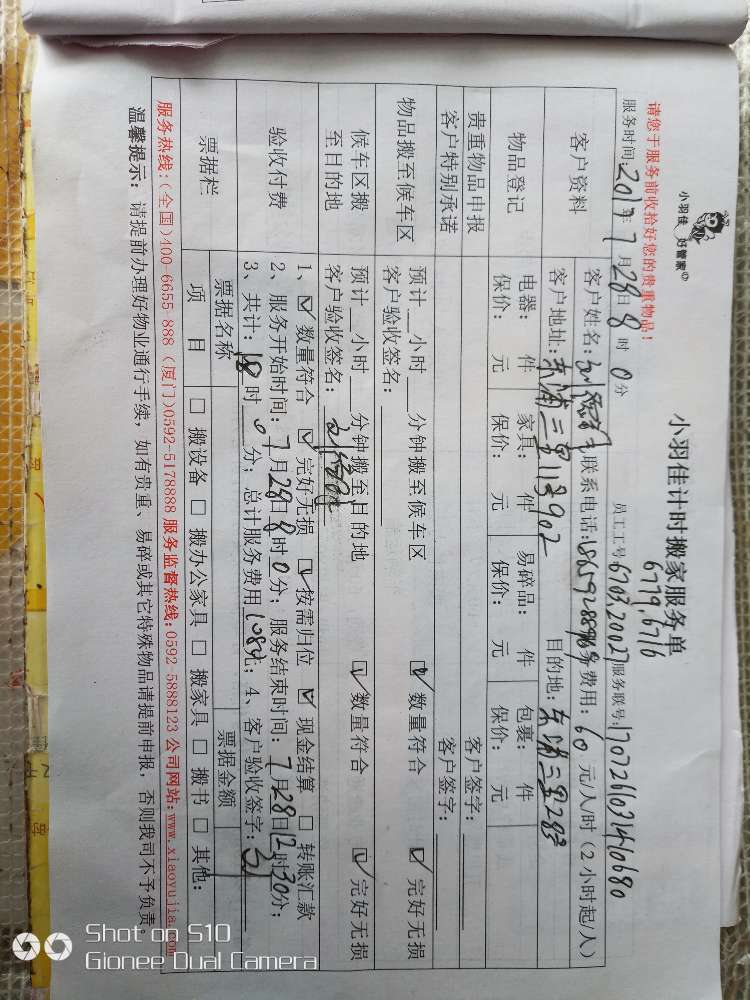 小羽佳 好管家
小羽佳计时搬家服务单
6779,6716
请您于服务前收拾好您的贵重物品!
服务时间:2017年7月28日8时0分 员工工号6703,20027服务联号:
客户资料 客户姓名: 联系电话: 费用:60元/人/时(2小时起/人)
客户地址:东浦二里113902 目的地:东浦二里283
物品登记 电器: 件 家具: 件 易碎品: 件 包裹: 件
保价: 元 保价: 元 保价: 元 保价: 元
贵重物品申报 客户签字:
客户特别承诺 客户签字:
物品搬至候车区 预计__小时__分钟搬至候车区 ☑数量符合 ☑完好无损
客户验收签名:
候车区搬至目的地 预计__小时__分钟搬至目的地 ☑数量符合 ☑完好无损
客户验收签名:
验收付费 1、☑数量符合 ☑完好无损 ☑按需归位 ☑现金结算 □转账汇款
2、服务开始时间:7月28日8时0分;服务结束时间:7月28日12时30分;
3、共计:18时0分;总计服务费用1080元;4、客户验收签字:
票据栏 票据名称 票据金额
项 目 □搬设备 □搬办公家具 □搬家具 □搬书 □其他:
服务热线:(全国)400-6655-888 (厦门)0592-5178888 服务监督热线:0592 5888123 公司网站:www.xiaoyujia.com
温馨提示:请提前办理好物业通行手续,如有贵重、易碎或其它特殊物品请提前申报,否则我司不予负责。
Shot on S10
Gionee Dual Camera